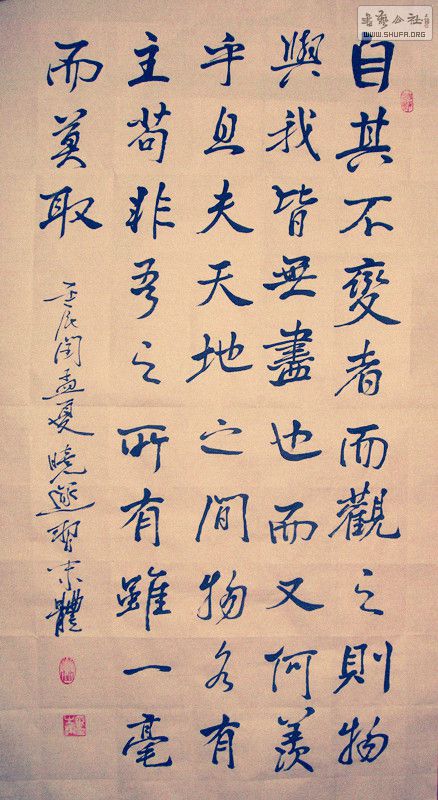 自其不變者而觀之則物
與我皆無盡也而又何羨
乎且夫天地之間物各有
主苟非吾之所有雖一毫
而莫取
壬辰閏孟夏曉邂習米體
書藝公社
WWW.SHUFA.ORG